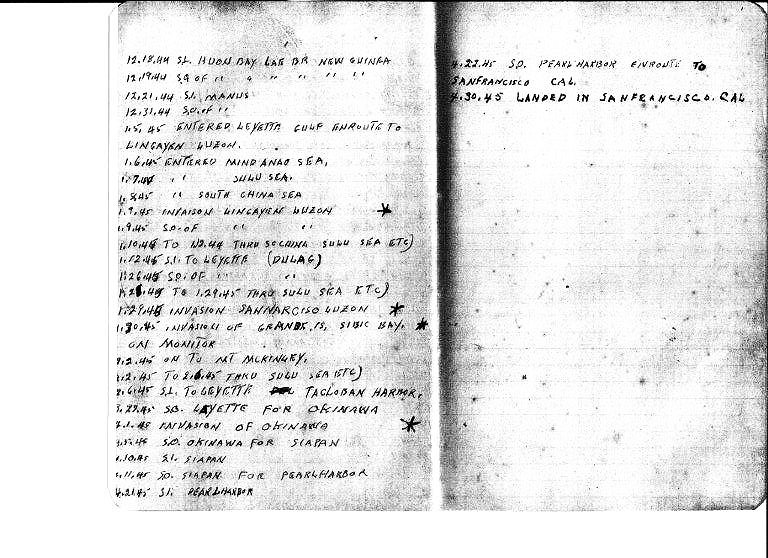 12.18.44 S.I. HUON BAY LAE BR NEW GUINEA
12.19.44 S.O OF " " " " " "
12.21.44 S.I. MANUS
12.31.44 S.O. OF "
1.5.45 ENTERED LEYETTE GULF ENROUTE TO
LINGAYEN LUZON.
1.6.45 ENTERED MINDANAO SEA,
1.7.45 " SULU SEA.
1.8.45 " SOUTH CHINA SEA
1.9.45 INVAISON LINGAYEN LUZON *
1.9.45 S.O. OF " "
1.10.45 TO THRU SULU SEA ETC)
1.12.45 S.I. TO LEYETTE (DULAG)
1.26.45 S.O. OF " "
TO 1.29.45 THRU SULU SEA ETC)
1.29.45 INVASION SANNARCISO LUZON *
1.30.45 INVASION OF GRANDE IS, SIBIC BAY. *
ON MONITOR
2.2.45 ON TO MT MCKINLEY.
2.2.45 TO 2.6.45 THRU SULU SEA ETC)
2.6.45 S.I. TO LEYETTE TACLOBAN HARBOR.
S.O. LAYETTE FOR OKINAWA
4.1.45 INVASION OF OKINAWA *
S.O. OKINAWA FOR SIAPAN
4.10.45 S.I. SIAPAN
4.11.45 S.O. SIAPAN FOR PEARLHARBOR
4.21.45 S.I. PEARLHARBOR
4.22.45 S.O. PEARLHARBOR ENROUTE TO
SANFRANCISCO CAL.
4.30.45 LANDED IN SANFRANCISCO. CAL